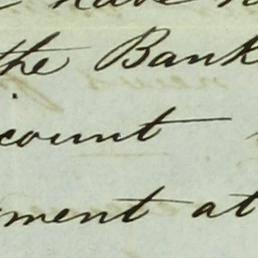 have
the Bank
count
ment at